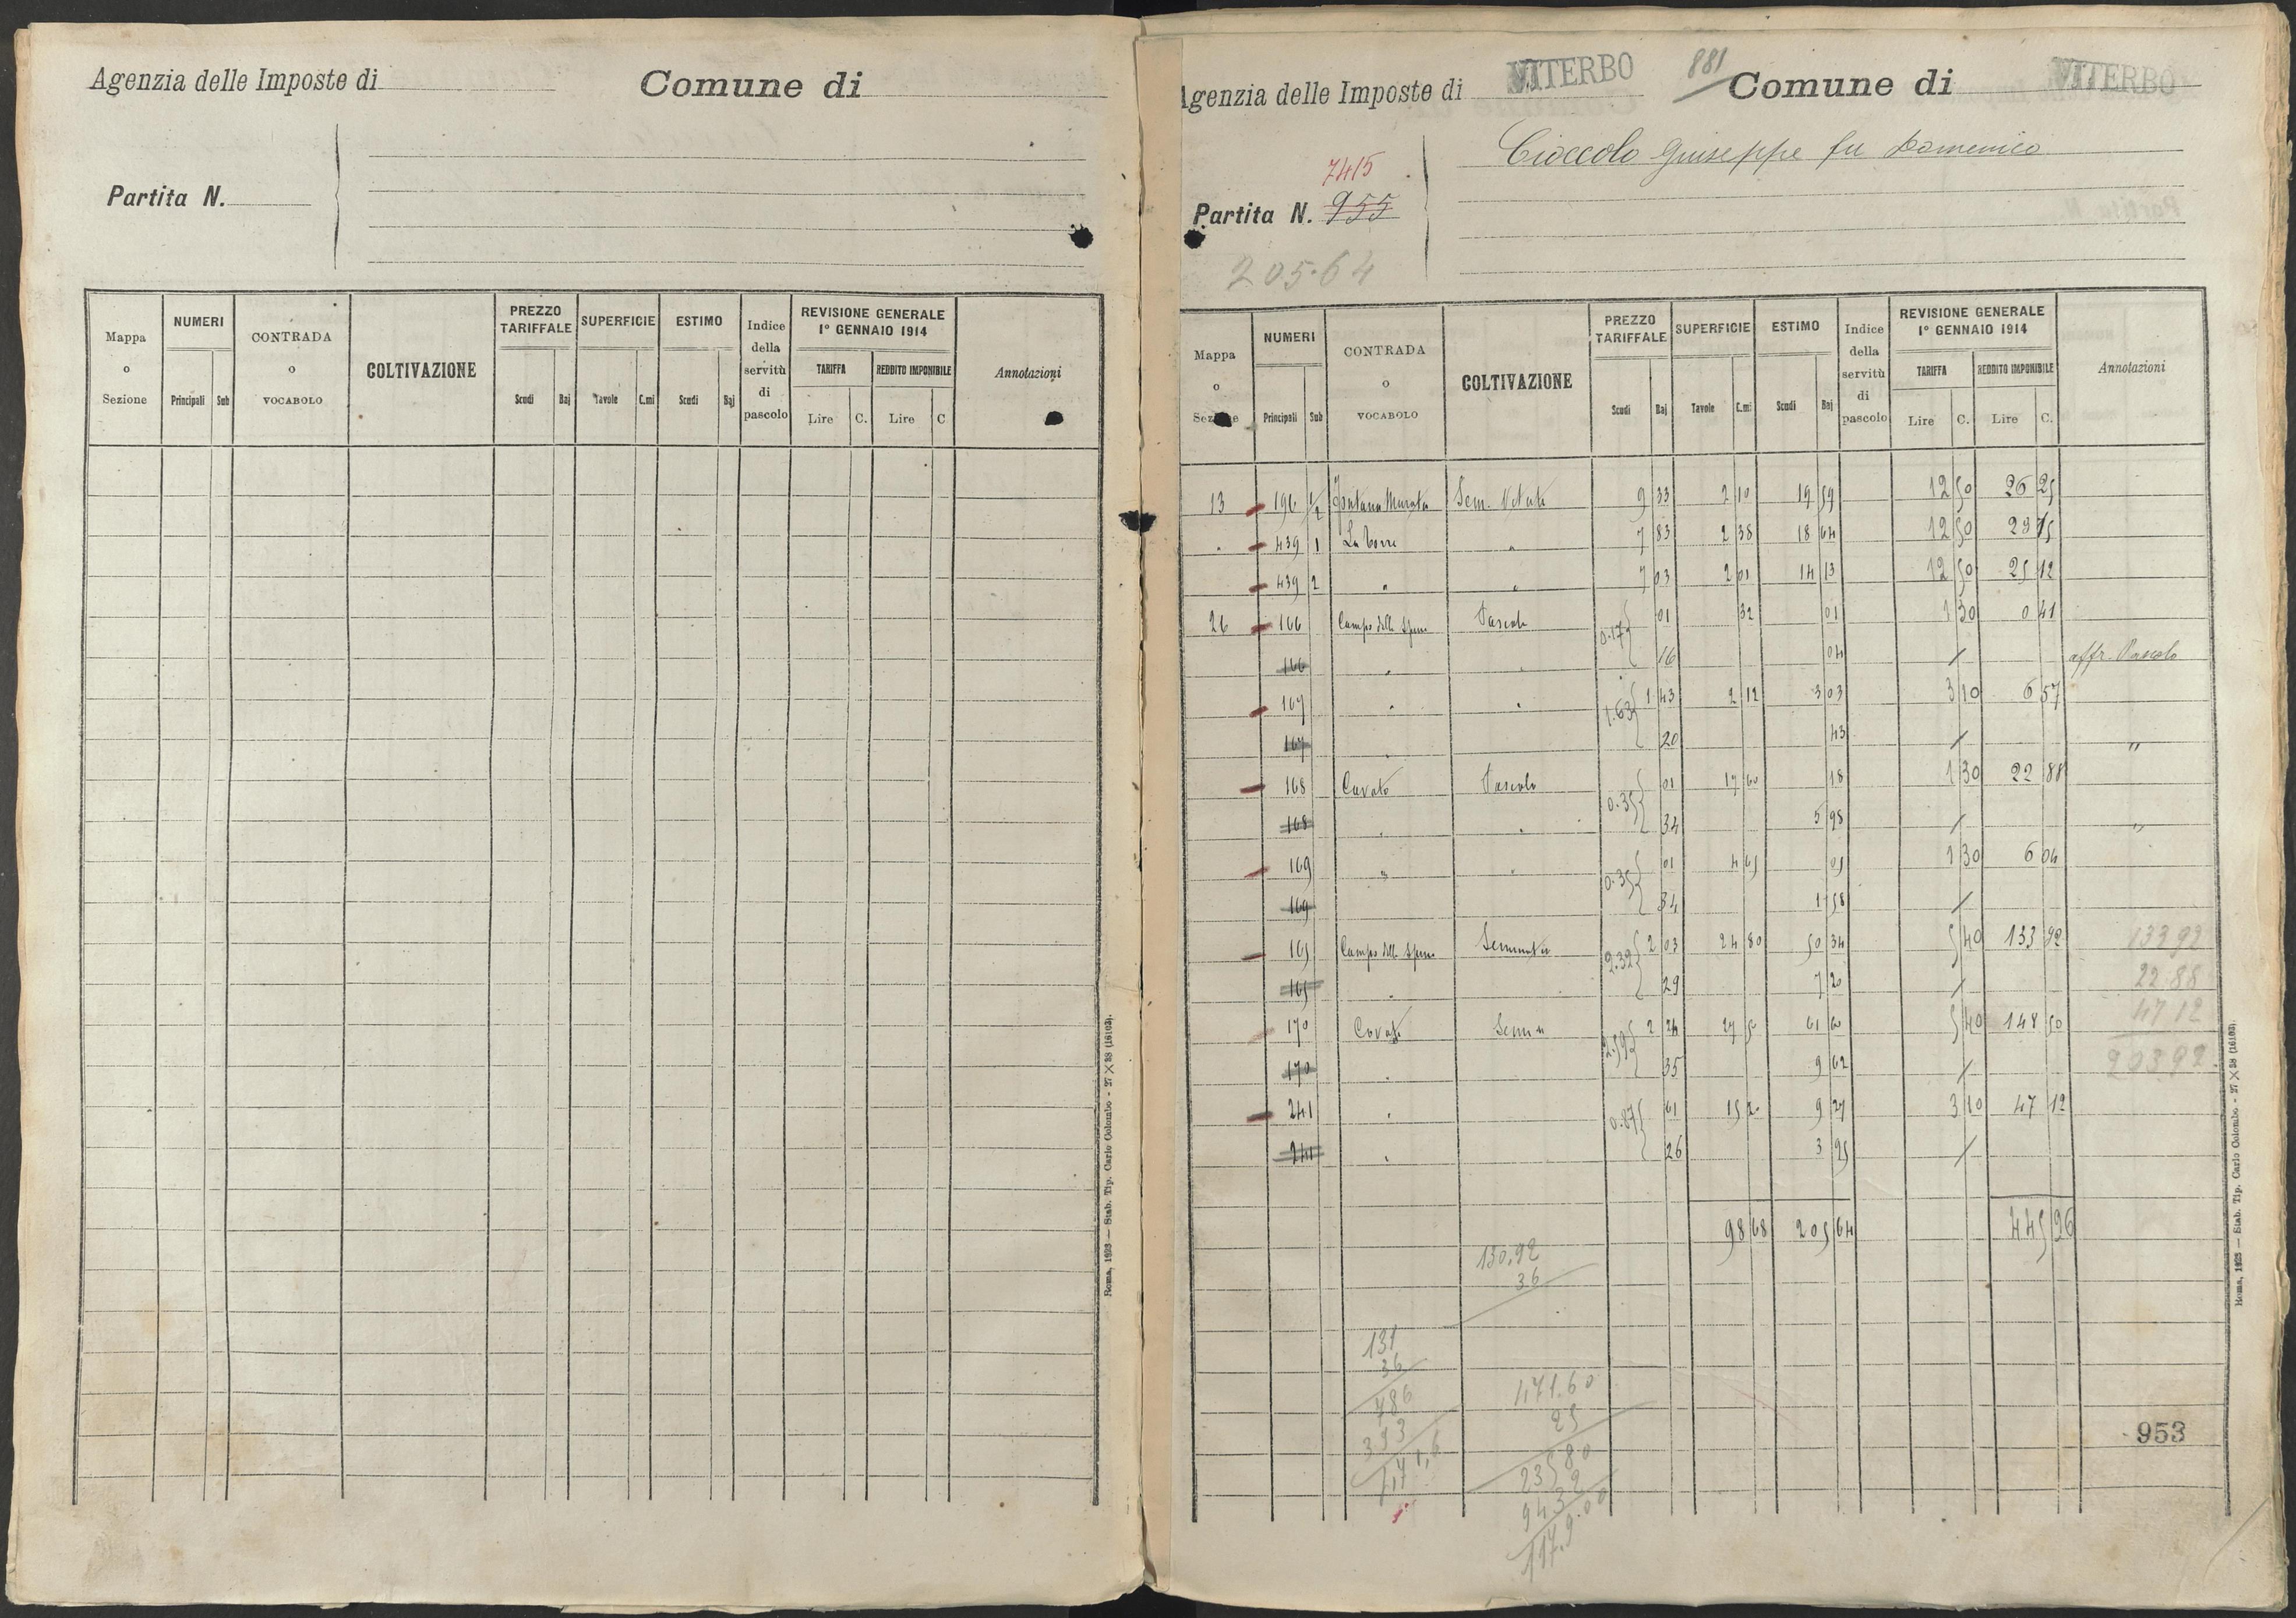 Agenzia delle Imposte di
Comune di
Partita N.
Mappa o Sezione
NUMERI
Principali Sub
CONTRADA o VOCABOLO
COLTIVAZIONE
PREZZO TARIFFALE
Scudi Baj
SUPERFICIE
Tavole C.mi
ESTIMO
Scudi Baj
Indice della servitù di pascolo
REVISIONE GENERALE
1° GENNAIO 1914
TARIFFA
Lire C.
REDDITO IMPONIBILE
Lire C
Annotazioni
Roma, 1923 — Stab. Tip. Carlo Colombo - 27 × 38 (16103).
Agenzia delle Imposte di VITERBO
881
Comune di VITERBO
Cioccolo Giuseppe fu Domenico
7415
Partita N. 955
205.64
Mappa o Sezione
NUMERI
Principali Sub
CONTRADA o VOCABOLO
COLTIVAZIONE
PREZZO TARIFFALE
Scudi Baj
SUPERFICIE
Tavole C.mi
ESTIMO
Scudi Baj
Indice della servitù di pascolo
REVISIONE GENERALE
1° GENNAIO 1914
TARIFFA
Lire C.
REDDITO IMPONIBILE
Lire C.
Annotazioni
13 196 1/2 Fontana Murata Sem. Vitato 9 33 2 10 19 59 12 50 26 25
" 439 1 La Torre " 7 83 2 38 18 64 12 50 29 75
439 2 " " 7 03 2 01 14 13 12 50 25 12
26 166 Campo delle Spine Pascolo 0.17 01 32 01 1 30 0 41
166 " " 16 04 / affr. Pascolo
167 " " 1.63 1 43 2 12 3 03 3 10 6 57
167 " 20 43 / "
168 Cavato Pascolo 0.35 01 17 60 18 1 30 22 88
168 " " 34 5 98 / "
169 " " 0.35 01 4 65 05 1 30 6 04
169 34 1 58 /
165 Campo delle Spine Seminato 2.32 2 03 24 80 50 34 5 40 133 92 133 92
165 " 29 7 20 / 22.88
170 Cavato Semin 2.59 2 24 27 50 61 60 5 40 148 50 47 12
170 " 35 9 62 / 203 92
241 " 0.87 61 15 20 9 27 3 10 47 12
241 " 26 3 95 /
98 68 205 64 445 26
130,92
36
131
36
786
393
471,6
471.60
25
23580
9432
117.9.00
953
Roma, 1923 — Stab. Tip. Carlo Colombo - 27 × 38 (16103).